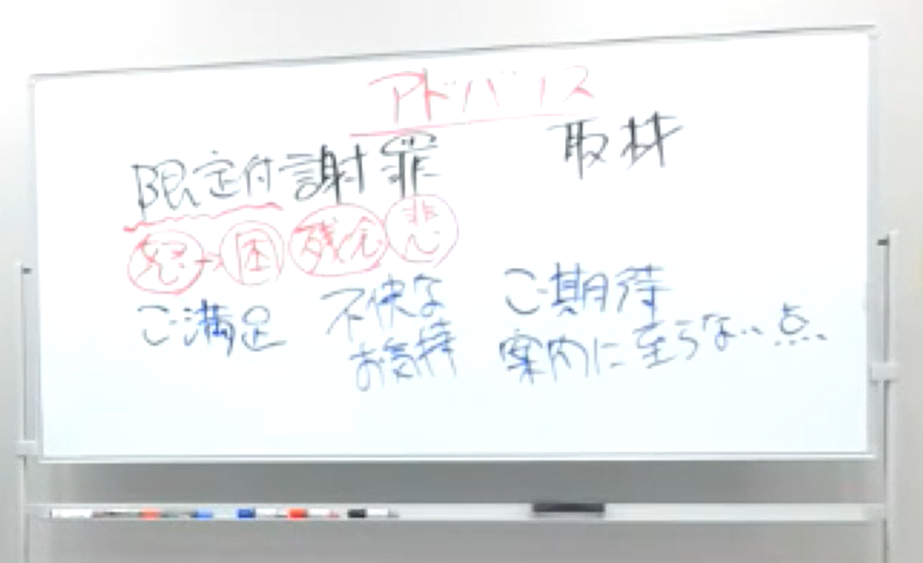 アドバイス
限定付謝罪 取材
怒→困 残念 悲
ご満足 不快な ご期待
お気持 案内に至らない点